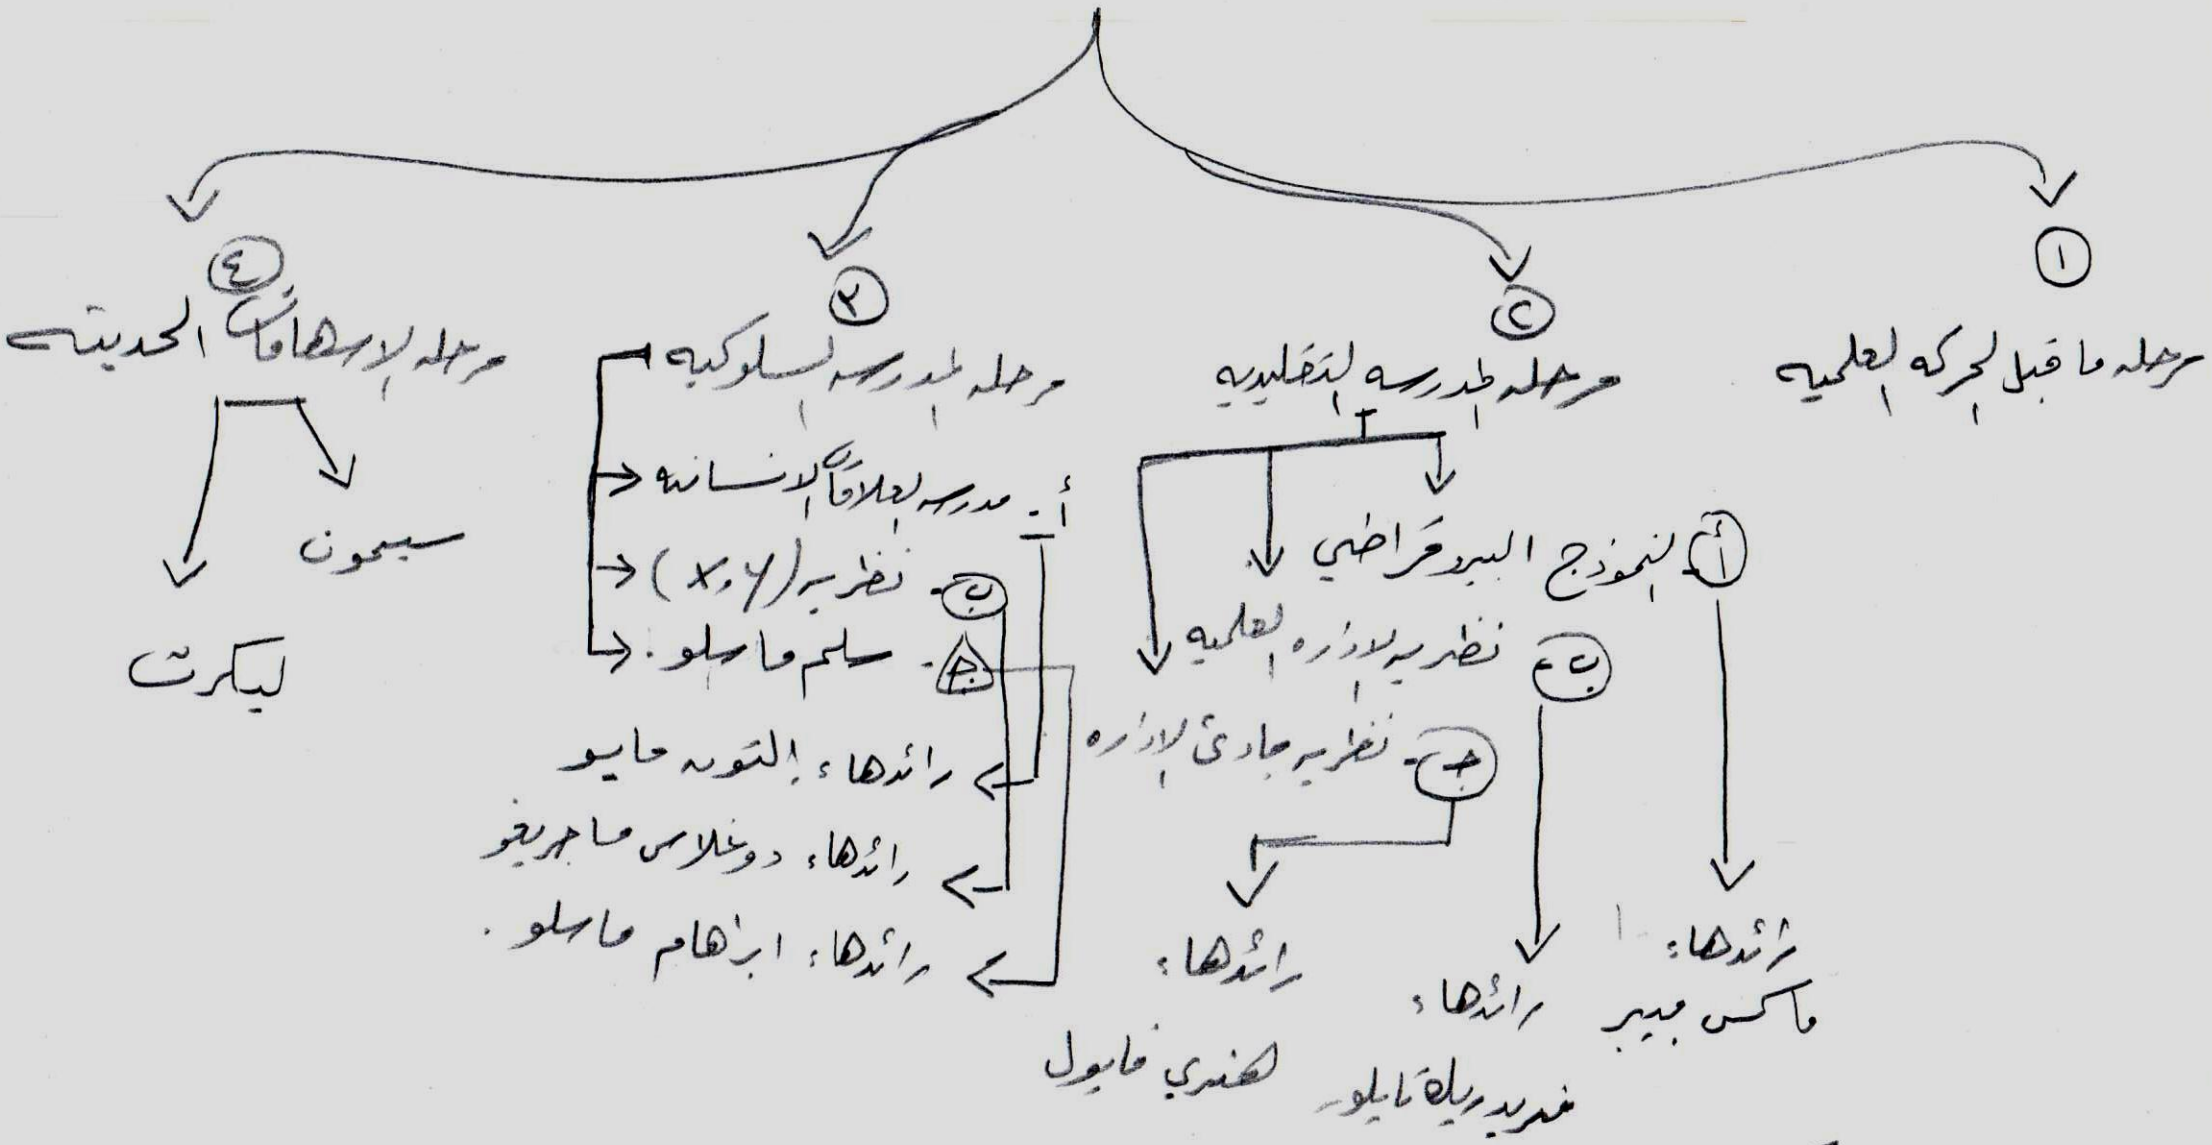 ١
مرحله ما قبل الحركه العلميه
٢
مرحله المدرسه التقليديه
أ- النموذج البيروقراطي
ب- نظريه الاداره العلميه
ج- نظريه مبادئ الاداره
رائدها:
ماكس فيبر
رائدها:
فريدريك تايلور
رائدها:
هنري فايول
٣
مرحله المدرسه السلوكيه
أ- مدرسه العلاقات الانسانيه
ب- نظريه (x,y)
ج- سلم ماسلو.
رائدها: إلتون مايو
رائدها: دوغلاس ماجريغو
رائدها: ابراهام ماسلو.
٤
مرحله الاسهامات الحديثه
سيمون
ليكرت